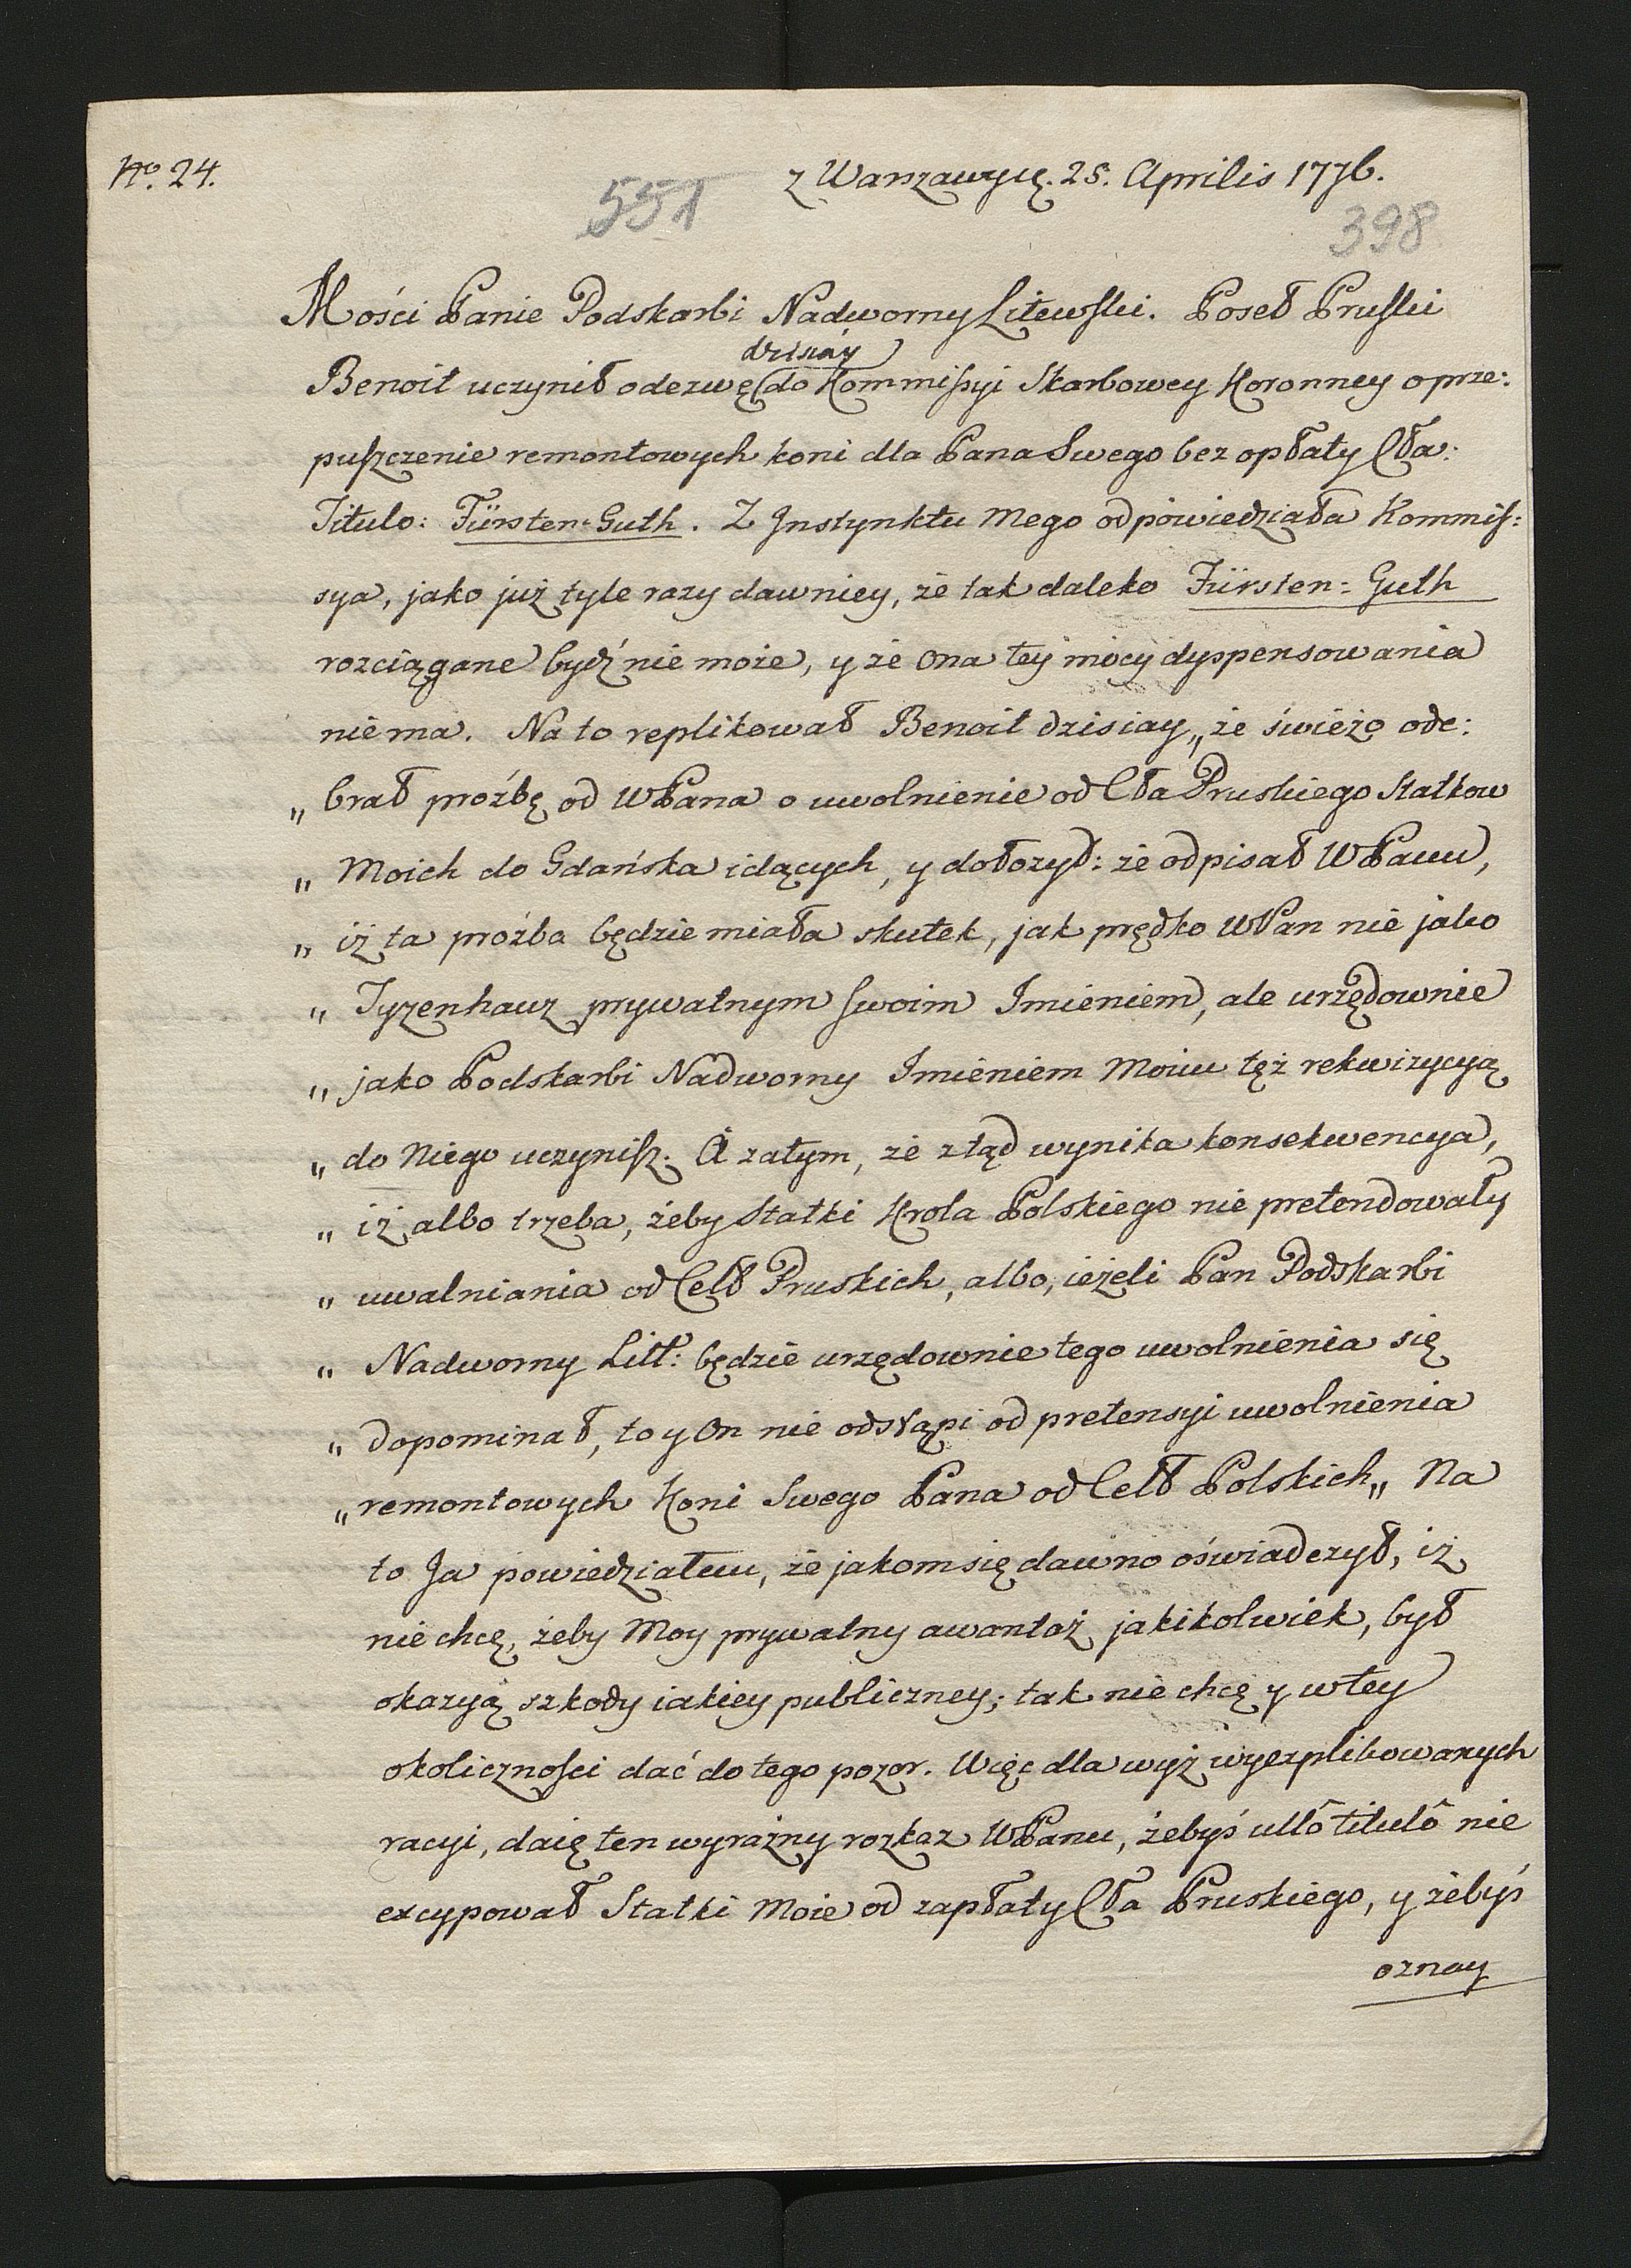 No. 24.
z Warszawy. 25. Aprilis 1776.
551
398
Mości Panie Podskarbi Nadworny Litewski. Poseł Pruski
dzisiay
Benoit uczynił odezwę do Kommißyi Skarbowey Koronney o prze:
pußzczenie remontowych koni dla Pana Swego bez opłaty Cła:
Titulo: Fürsten-Guth. Z Jnstynktu Mego odpowiedziała Kommis:
sya, jako już tyle razy dawniey, że tak daleko Fürsten-Guth
rozciągane bydź nie może, y że Ona tey mocy dyspensowania
nie ma. Na to replikował Benoit dzisiay „że świeżo ode:
„ brał prożbę od WPana o uwolnienie od Cła Pruskiego Statkow
„ Moich do Gdańska idących, y dołożył: że odpisał WPanu,
„ iż ta prożba będzie miała skutek, jak prędko WPan nie jako
„ Tyzenhauz prywatnym swoim Imieniem, ale urzędownie
„ jako Podskarbi Nadworny Imieniem Moim też rekwizycyą
„ do Niego uczynißz. A zatym, że ztąd wynika konsekwencya,
„ iż albo trzeba, żeby Statki Krola Polskiego nie pretendowały
„ uwalniania od Ceł Pruskich, albo, ieżeli Pan Podskarbi
„ Nadworny Litt: będzie urzędownie tego uwolnienia się
„ dopominał, to y On nie odstąpi od pretensyi uwolnienia
„ remontowych Koni Swego Pana od Ceł Polskich„ Na
to Ja powiedziałem, że jakom się dawno oświadczył, iż
nie chcę, żeby Moy prywatny awantaż jakikolwiek, był
okazyą szkody iakiey publiczney; tak nie chcę y w tey
okoliczności dać do tego pozor. Więc dla wyż wyexplikowanych
racyi, daię ten wyraźny rozkaz WPanu, żebyś ullô titulô nie
excypował Statki Moie od zapłaty Cła Pruskiego, y żebyś
oznay